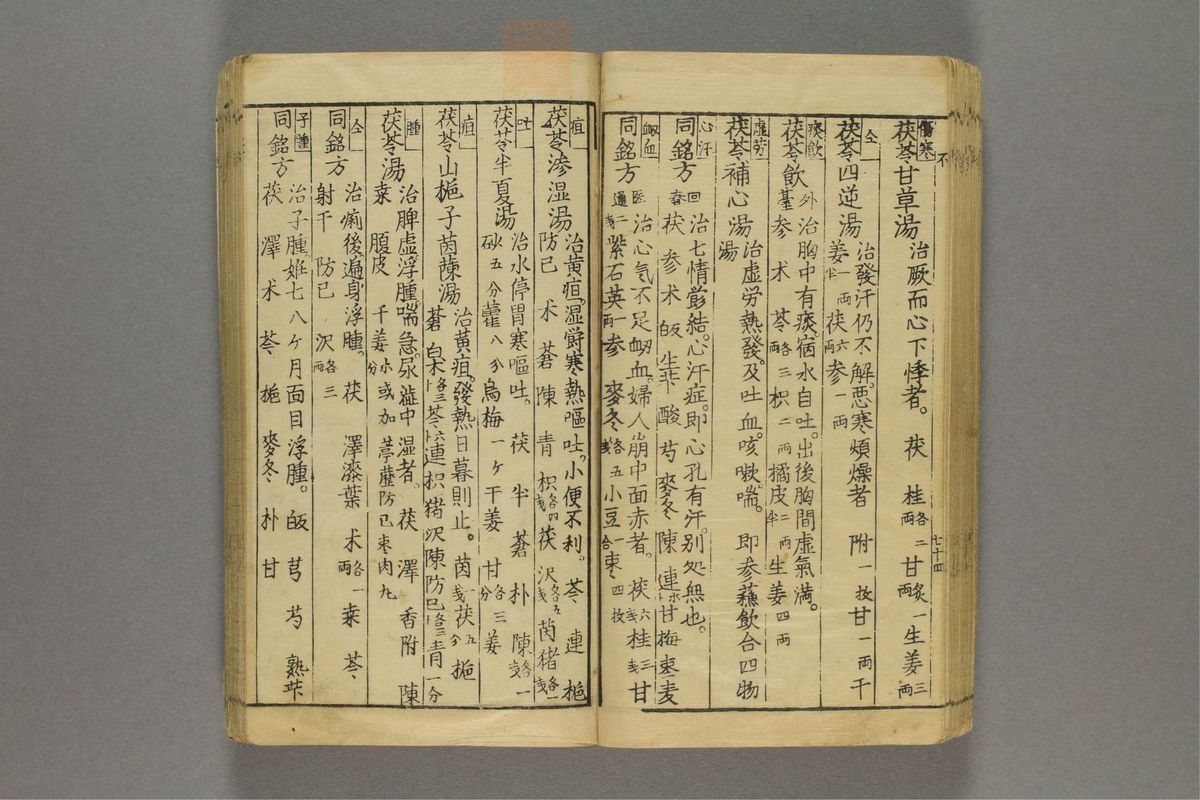 不
七十四
傷寒
茯苓甘草湯 治厥而心下悸者。 茯 桂各二両 甘炙一両 生姜三両
仝
茯苓四逆湯 治發汗仍不解。悪寒煩燥者 附一枚 甘一両 干
姜一両半 茯六両 参一両
痰飲
茯苓飲 外臺 治胸中有痰。宿水自吐。出後胸間虚氣満。
参 术 苓各三両 枳二両 橘皮二両半 生姜四両
虚労
茯苓補心湯 治虚労熱發。及吐血。咳嗽。喘。 即参蘓飲合四物
湯
心汗
同銘方 回春 治七情欝結。心汗症。即心孔有汗。別処無也。
茯 参 术 皈 生芐 酸 芍 麥冬 陳 連 甘 梅 枣 麦
衂血
同銘方 医通 治心気不足衂血。婦人崩中面赤者。 茯六戋 桂三戋 甘
二戋 紫石英一両 参 麥冬各五戋 小豆一合 枣四枚
疸
茯苓渗湿湯 治黄疸。湿欝寒熱嘔吐。小便不利。 苓 連 梔
防已 术 蒼 陳 青 枳各四戋 茯 沢各五戋 茵 猪各一戋
吐
茯苓半夏湯 治水停胃寒嘔吐。 茯 半 蒼 朴 陳各一戋
砂五分 藿八分 烏梅一ケ 干姜 甘各三分 姜
疸
茯苓山梔子茵蔯湯 治黄疸。發熱日暮則止。 茵一戋 茯五分 梔
蒼 白术 苓 連 枳 猪 沢 陳 防已 青一分
腫
茯苓湯 治脾虚浮腫。喘急。尿澁中湿者。 茯 澤 香附 陳
桒 腹皮 干姜 或加 葶藶 防已 枣肉丸
仝
同銘方 治痢後。遍身浮腫。 茯 澤漆葉 术各一両 桒 苓
射干 防已 沢各三両
子腫
同銘方 治子腫。姙七八ケ月面目浮腫。 皈 芎 芍 熟芐
茯 澤 术 苓 梔 麥冬 朴 甘